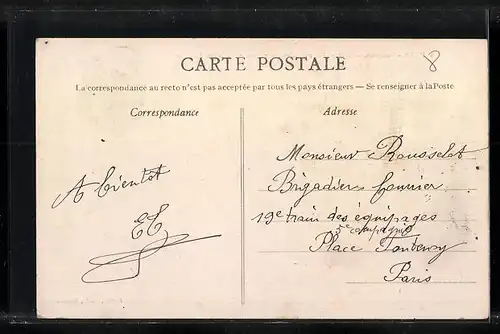 8
CARTE POSTALE
La correspondance au recto n'est pas acceptée par tous les pays étrangers — Se renseigner à la Poste
Correspondance
Adresse
A bientôt
Monsieur Rousselot
Brigadier fourrier
19e train des équipages
5e compagnie
Place Fontenoy
Paris